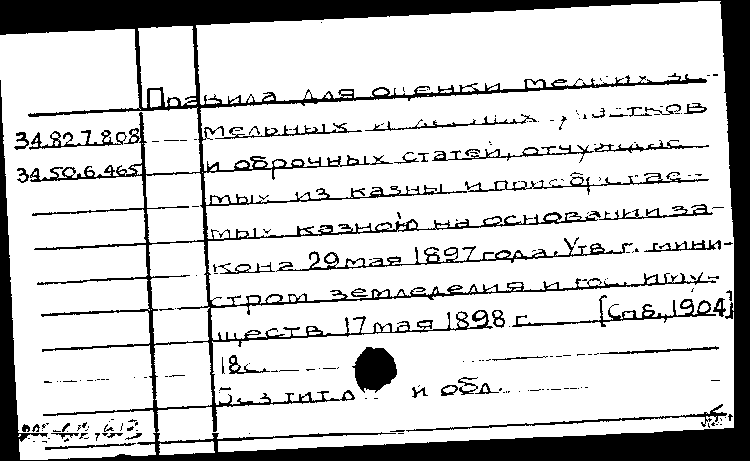 Правила для оценки мелких зе-
34.82.7.808 мельных и лесных участков
34.50.6.465 и оброчных статей, отчуждае-
мых из казны и приобретае-
мых казною на основании за-
кона 29 мая 1897 года. Утв. г. мини-
стром земледелия и гос. иму-
ществ. 17 мая 1898 г. [Спб., 1904]
18с.
Без тит. л. и обл.